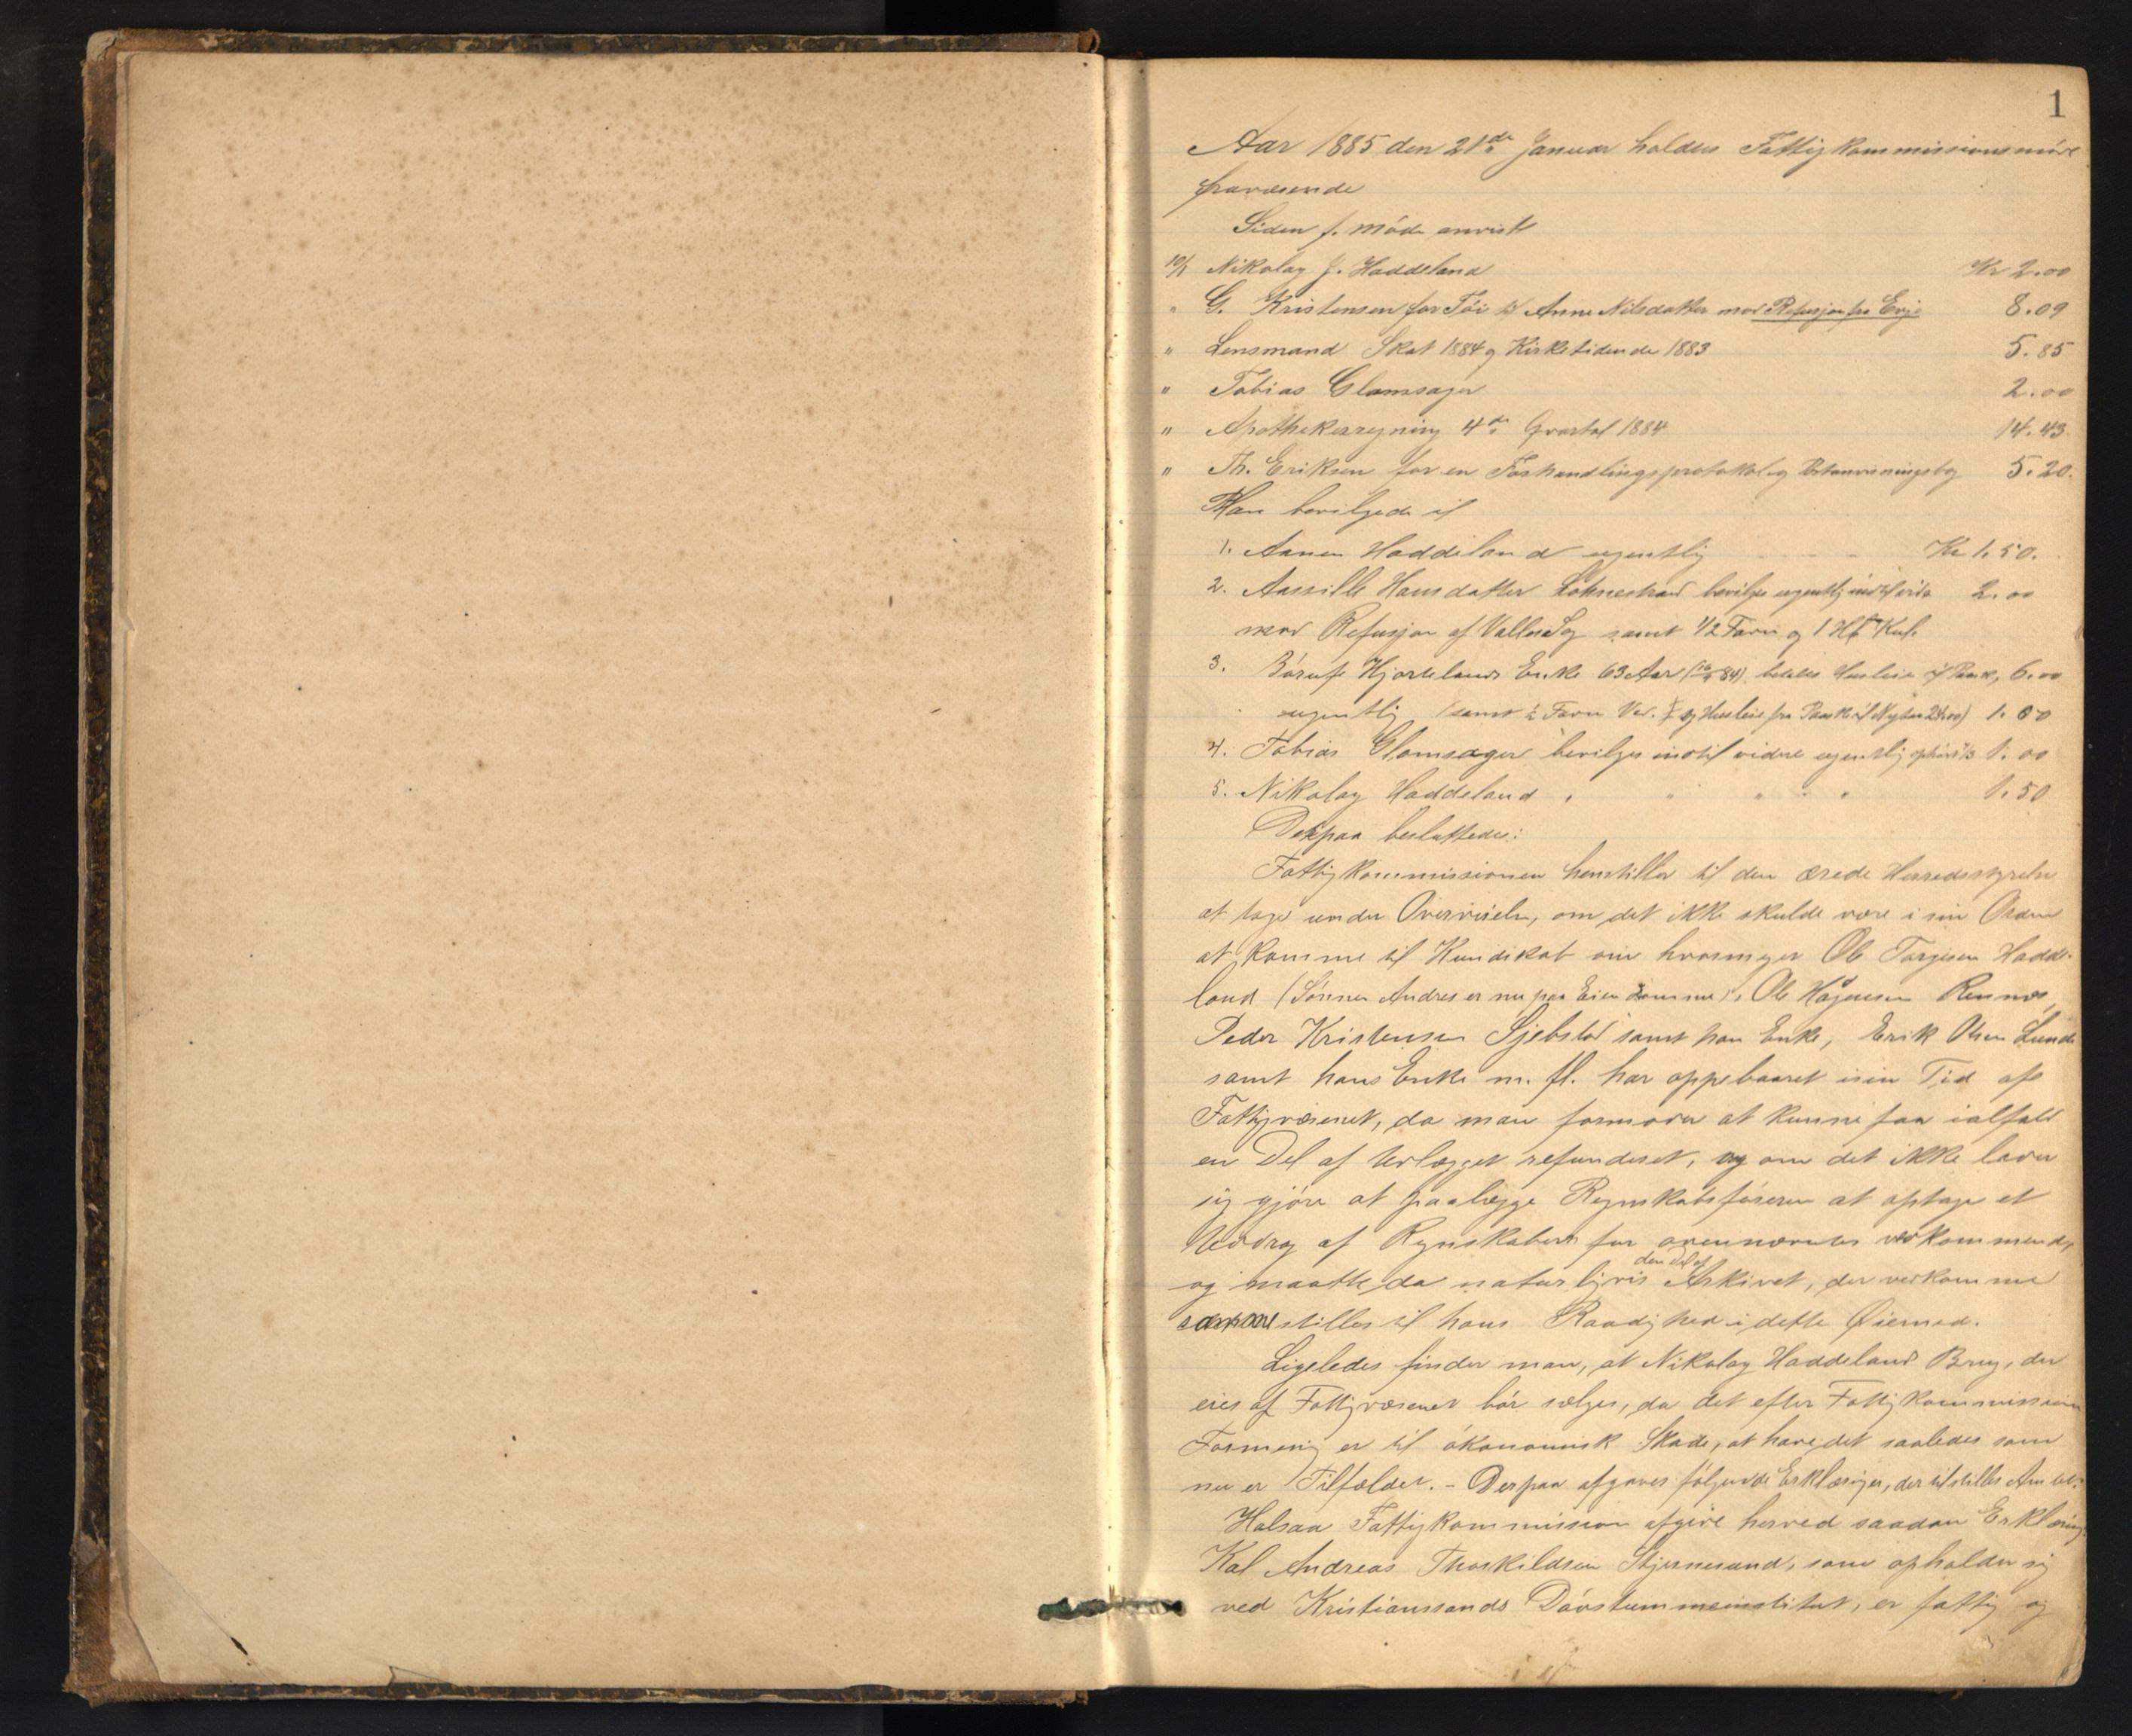 1
Aar 1885 den 21de Januar holdtes Fattigkommissionsmöde
fraværende
Siden f. möde anvist
10/1 Nikolay J. Haddeland Kr 2.00
" G. Kristensen for Töi til Anne Nilsdatter mod Refusjon fra Evje 8.09
" Lensmand Skat 1884 og Kirketidende 1883 5.85
" Tobias Glamsager 2.00
" Apothekerregning 4de Qvartal 1884 14.43
" Th. Eriksen for en Forhandlingsprotokol og Postanvisningsbog 5.20.
Man bevilgede til
1. Aanen Haddeland ugentlig Kr 1.50.
2. Aassille Hansdatter Löhnestrand bevilges ugentlig indtil vidre 2.00
mod Refusjon af Valle Sog samt 1/2 Favn og 1 Kul.
3. Hjortelands Enke 63 Aar betales Husleie til Paaske, 6.00
ugentlig (samt ½ Favn Ved. og Husleie fra Paaske til Nytaar) 1.00
4. Tobias Glamsager bevilges indtil vidre ugentlig 1.00
5. Nikolay Haddeland " " " " " 1.50
Derpaa besluttedes:
Fattigkommissionen henstiller til den ærede Herredsstyrelse
at tage under Overveielse, om det ikke skulde være i sin Orden
at komme til Kundskab om hvormeget Ole Torjesen Hadde-
land (Sönnen Andres er nu paa Eiendommen), Ole Håģensen Rennes,
Peder Kristensen Sjebstad samt han Enke, Erik Olsen Lunde
samt hans Enke m. fl. har oppebaaret i sin Tid af
Fattigvæsenet, da man formoder at kunne faa ialfald
en Del af Udlægget refunderet, og om det ikke lader
sig gjöre at paalægge Regnskabsföreren at optage et
Uddrag af Regnskabern for ovennævntes vedkommende,
og maatte da naturligvis den Del af Arkivet, der vedkomme
stilles til hans Raadighed i dette Öiemed.
Ligeledes finder man, at Nikolay Haddeland Brug, der
eies af Fattigvæsenet bör sælges, da det efter Fattigkommissionens
Formening er til ökonomisk Skade, at have det saaledes som
nu er Tilfældet. - Derpaa afgaves fölgende Erklæringer, der tilstilles Amtet:
Halsaa Fattigkommission afgive herved saadan Erklæring:
Kal Andreas Thorkildsen Stjernesand, som opholder sig
ved Kristianssands Dövstummeinstitut, er fattig og